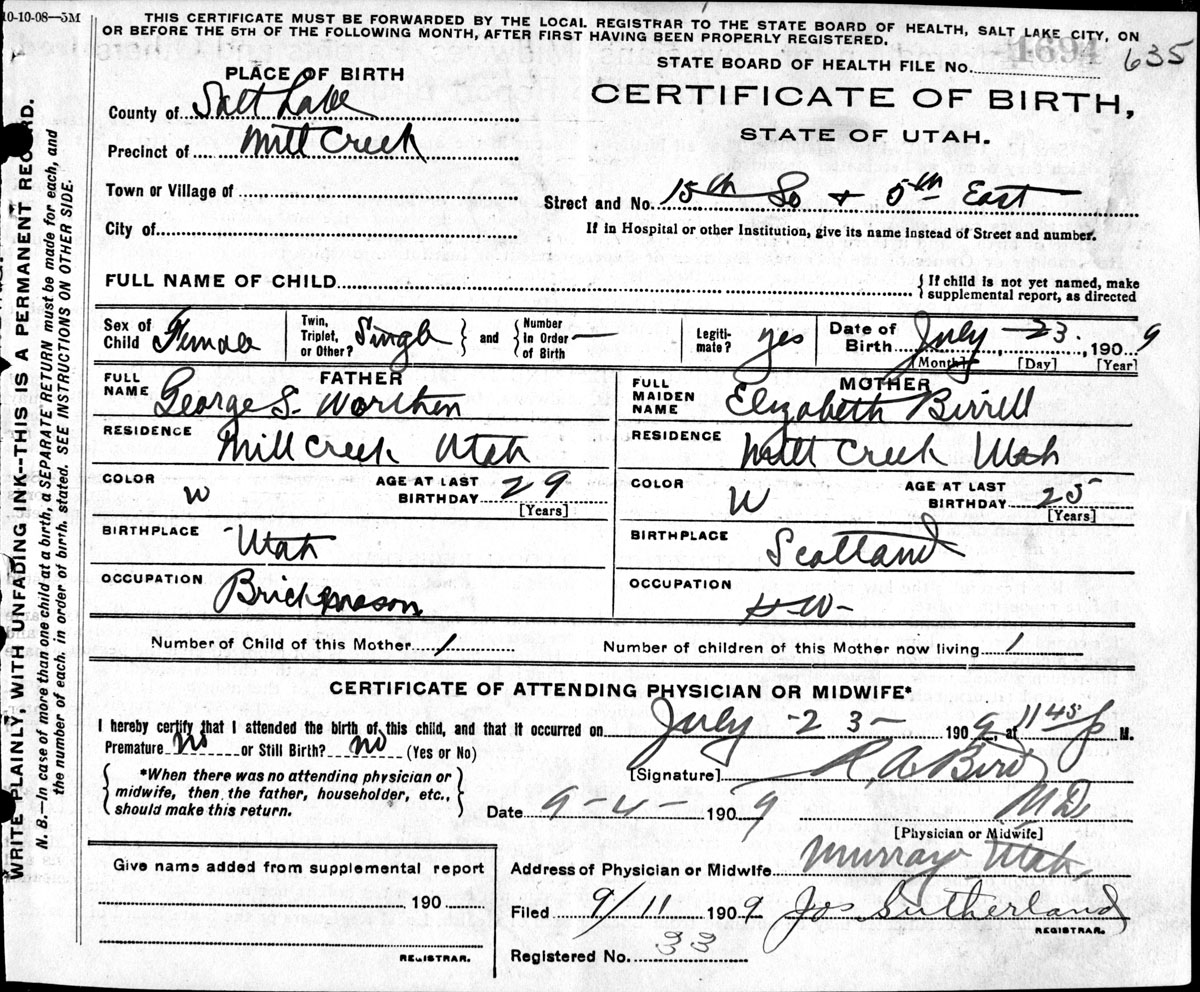 10-10-08—5M
THIS CERTIFICATE MUST BE FORWARDED BY THE LOCAL REGISTRAR TO THE STATE BOARD OF HEALTH, SALT LAKE CITY, ON
OR BEFORE THE 5TH OF THE FOLLOWING MONTH, AFTER FIRST HAVING BEEN PROPERLY REGISTERED.
1694 635
STATE BOARD OF HEALTH FILE No.
PLACE OF BIRTH
CERTIFICATE OF BIRTH,
STATE OF UTAH.
County of Salt Lake
Precinct of Mill Creek
Town or Village of
Street and No. 15th So + 5th East
City of
If in Hospital or other Institution, give its name instead of Street and number.
FULL NAME OF CHILD
{ If child is not yet named, make
supplemental report, as directed
Sex of Child Female
Twin, Triplet, or Other? Single } and { Number In Order of Birth —
Legiti-mate? yes
Date of Birth July - 23. , 1909
[Month] [Day] [Year]
FATHER
FULL NAME George S. Worthen
RESIDENCE Mill Creek Utah
COLOR W
AGE AT LAST BIRTHDAY 29
[Years]
BIRTHPLACE Utah
OCCUPATION Brickmason
MOTHER
FULL MAIDEN NAME Elizabeth Birrell
RESIDENCE Mill Creek Utah
COLOR W
AGE AT LAST BIRTHDAY 25
[Years]
BIRTHPLACE Scotland
OCCUPATION H-W-
Number of Child of this Mother 1
Number of children of this Mother now living 1
CERTIFICATE OF ATTENDING PHYSICIAN OR MIDWIFE*
I hereby certify that I attended the birth of this child, and that it occurred on July - 23 - 1909, at 1145 p M.
Premature no or Still Birth? no (Yes or No)
{ *When there was no attending physician or
midwife, then the father, householder, etc.,
should make this return. }
[Signature] R. A. Bird
Date 9-4- 1909 M D.
[Physician or Midwife]
Give name added from supplemental report
190
REGISTRAR.
Address of Physician or Midwife Murray Utah,
Filed 9/11 1909 Jos Sutherland
REGISTRAR.
Registered No. 33
WRITE PLAINLY, WITH UNFADING INK--THIS IS A PERMANENT RECORD.
N. B.—In case of more than one child at a birth, a SEPARATE RETURN must be made for each, and
the number of each. in order of birth. stated. SEE INSTRUCTIONS ON OTHER SIDE.